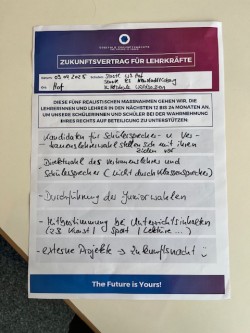 ZUKUNFTSVERTRAG FÜR LEHRKRÄFTE
DIESE FÜNF REALISTISCHEN MASSNAHMEN GEHEN WIR, DIE
LEHRERINNEN UND LEHRER IN DEN NÄCHSTEN 12 BIS 24 MONATEN AN,
UM UNSERE SCHÜLERINNEN UND SCHÜLER BEI DER WAHRNEHMUNG
IHRES RECHTS AUF BETEILIGUNG ZU UNTERSTÜTZEN
- Kandidaten für Schülersprecher- u Ver-
trauenslehrerwahl stellen sich mit ihren
Zielen vor
- Direktwahl des Vertrauenslehrer und
Schülersprecher (nicht durch Klassensprecher)
- Durchführung der Juniorwahlen
- Mitbestimmung bei Unterrichtsinhalten
(zB Kunst / Sport / Lektüre ...)
- externe Projekte → Zukunftsnacht
The Future is Yours!